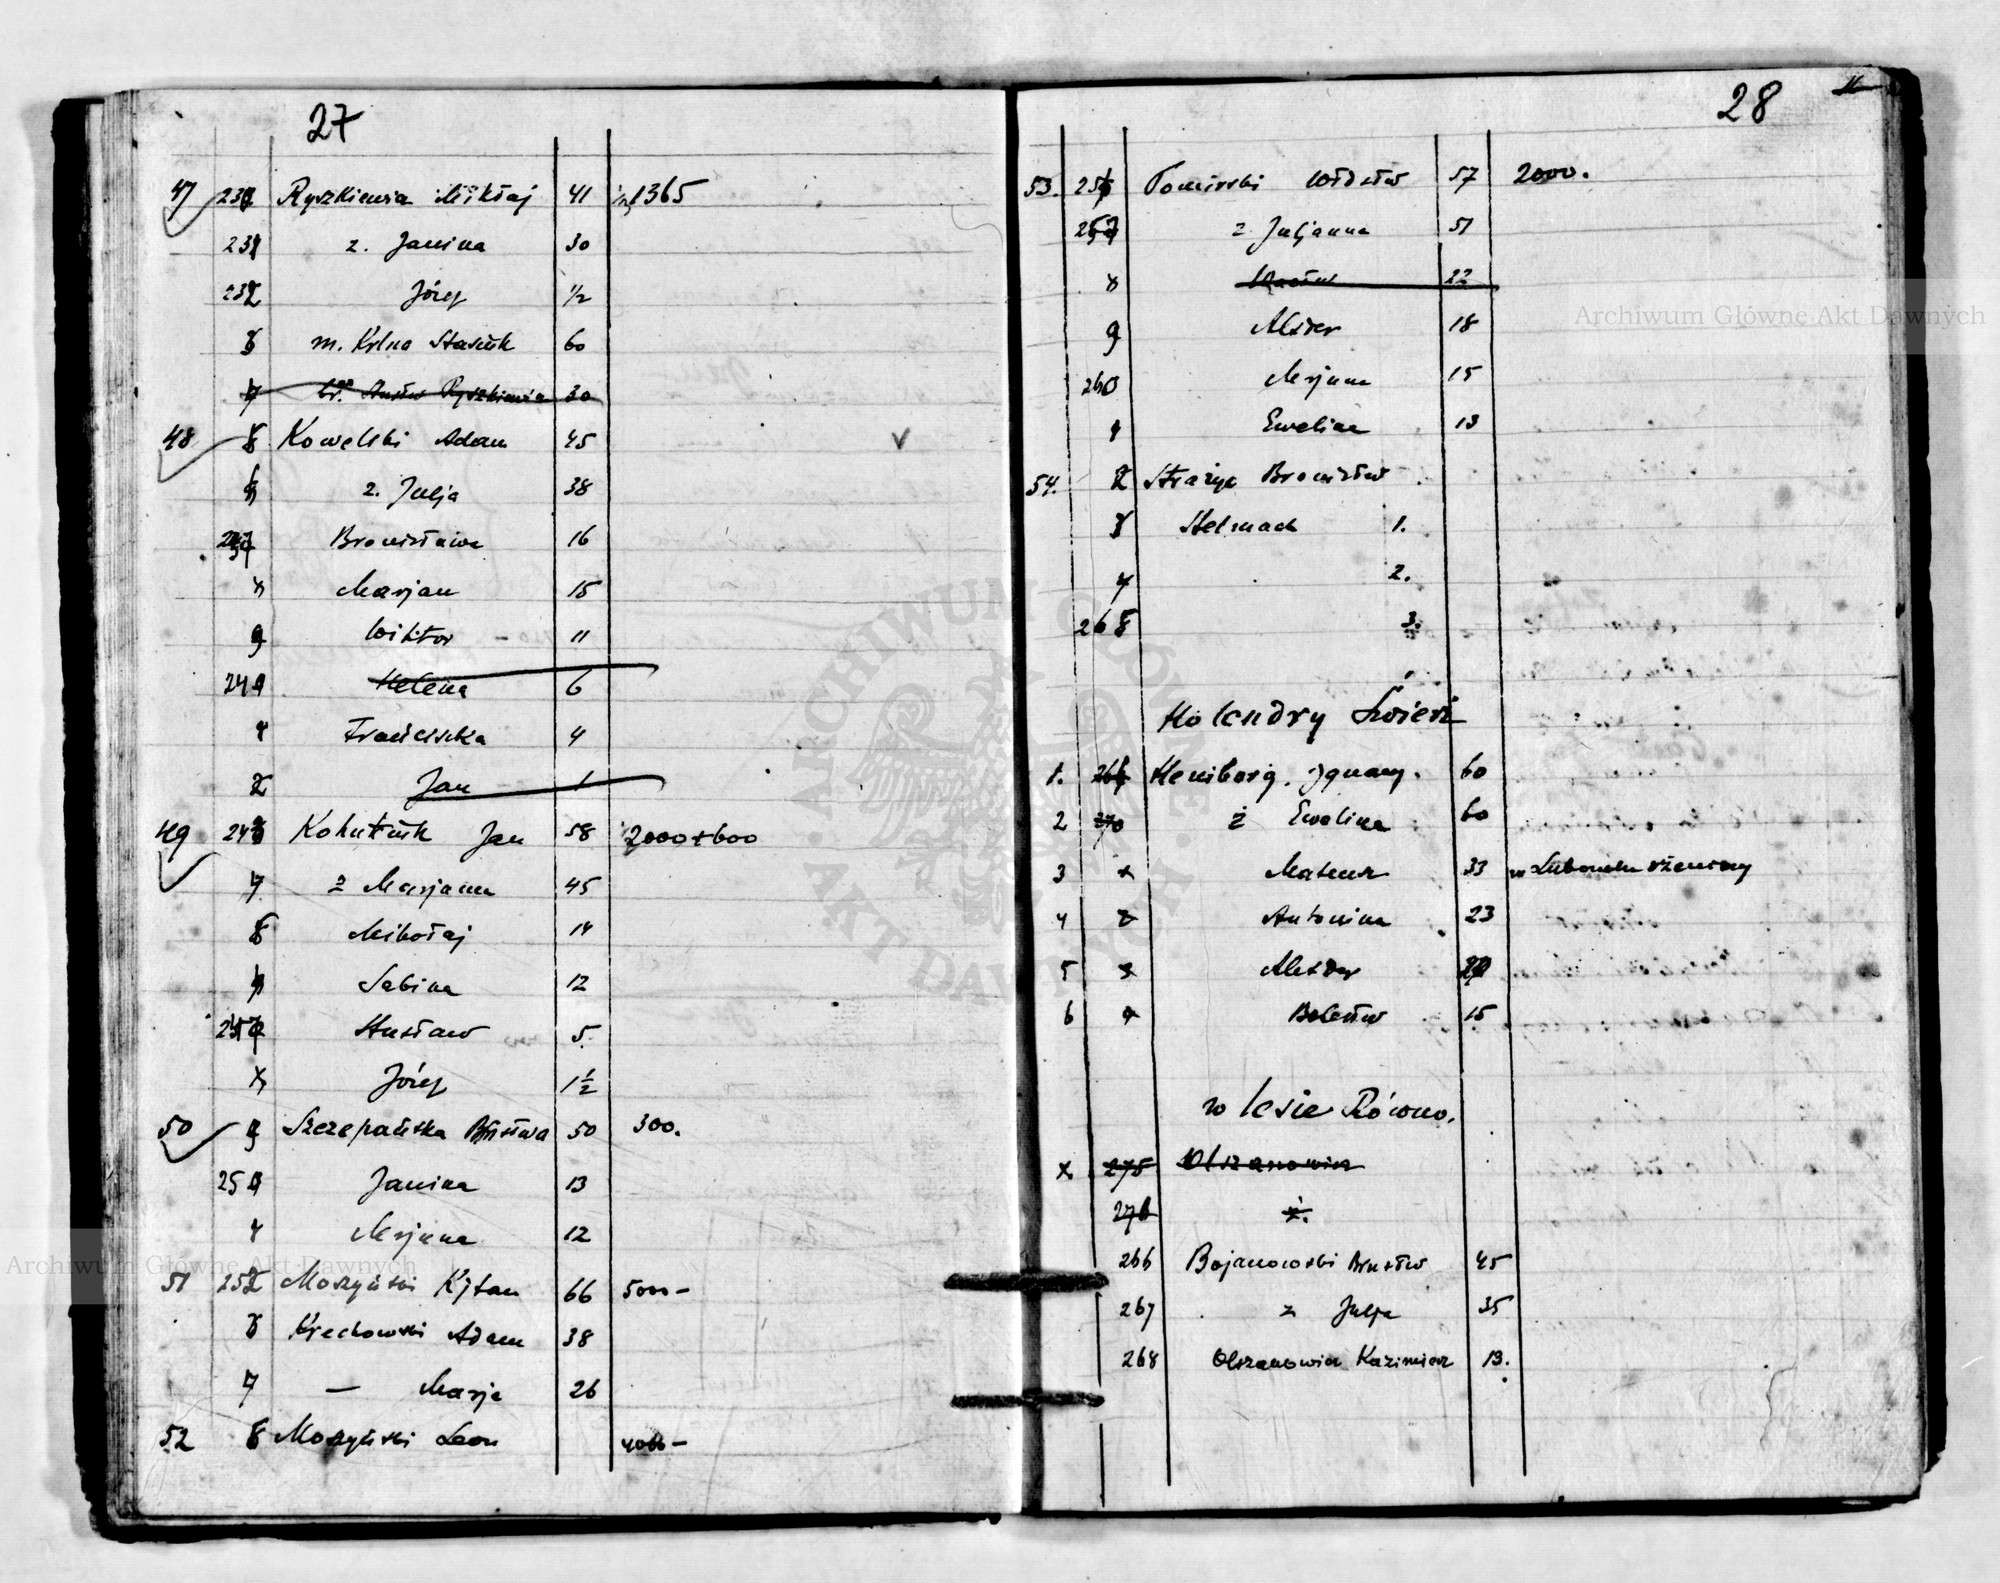 27
47 230 Ryszkiewicz Mikłaj 41 1365
231 ż. Janina 30
232 Józef 1/2
3 m. Krlna Stasiuk 60
4 br. Ryszkiewicz 30
48 Kowalski Adam 45 V
6 ż. Julja 38
237 Bronisława 16
8 Marjan 15
9 Wiktor – 11
240 Helena 6
1 Franciszka 4
2 Jan 1
49 243 Kohutiuk Jan 58 2000+600
4 ż Marjanna 45
5 Mikołaj 14
6 Sabina 12
247 Stusław 5
8 Józef 1 1/2
50 9 Szczepańska Brsłwa 50 300.
250 Janina 13
1 Mrjanna 12
51 252 Moszyński Kjtan 66 5000–
3 Krechowski Adam 38
4 — Marja 26
52 5 Moszyński Leon 4000–
28
53. 256 Tomirski Włdsłw 57 2000.
257 ż Juljanna 51
8 Wacław 22
9 Alxder 18
260 Mrjana 15
1 Ewelina 13
54. 2 Strażyc Bronisłw
3 Stelmach 1.
4 2.
265 3.
Holendry Świerż
1. Hemiborg. Ignacy. 60
2 270 ż Ewelina 60
3 Mateusz 33 w Lubomlu żeniony
4 Antonina 23
5 Alexder
6 Bolesłw 15
w lesie Równo.
x 275 Olszanowicz
276 ż.
266 Bojanowski Brnsłw 45
267 ż Julja 35
268 Olszanowicz Kazimierz 13.
Archiwum Główne Akt Dawnych
Archiwum Główne Akt Dawnych
ARCHIWUM GŁÓWNE
AKT DAWNYCH